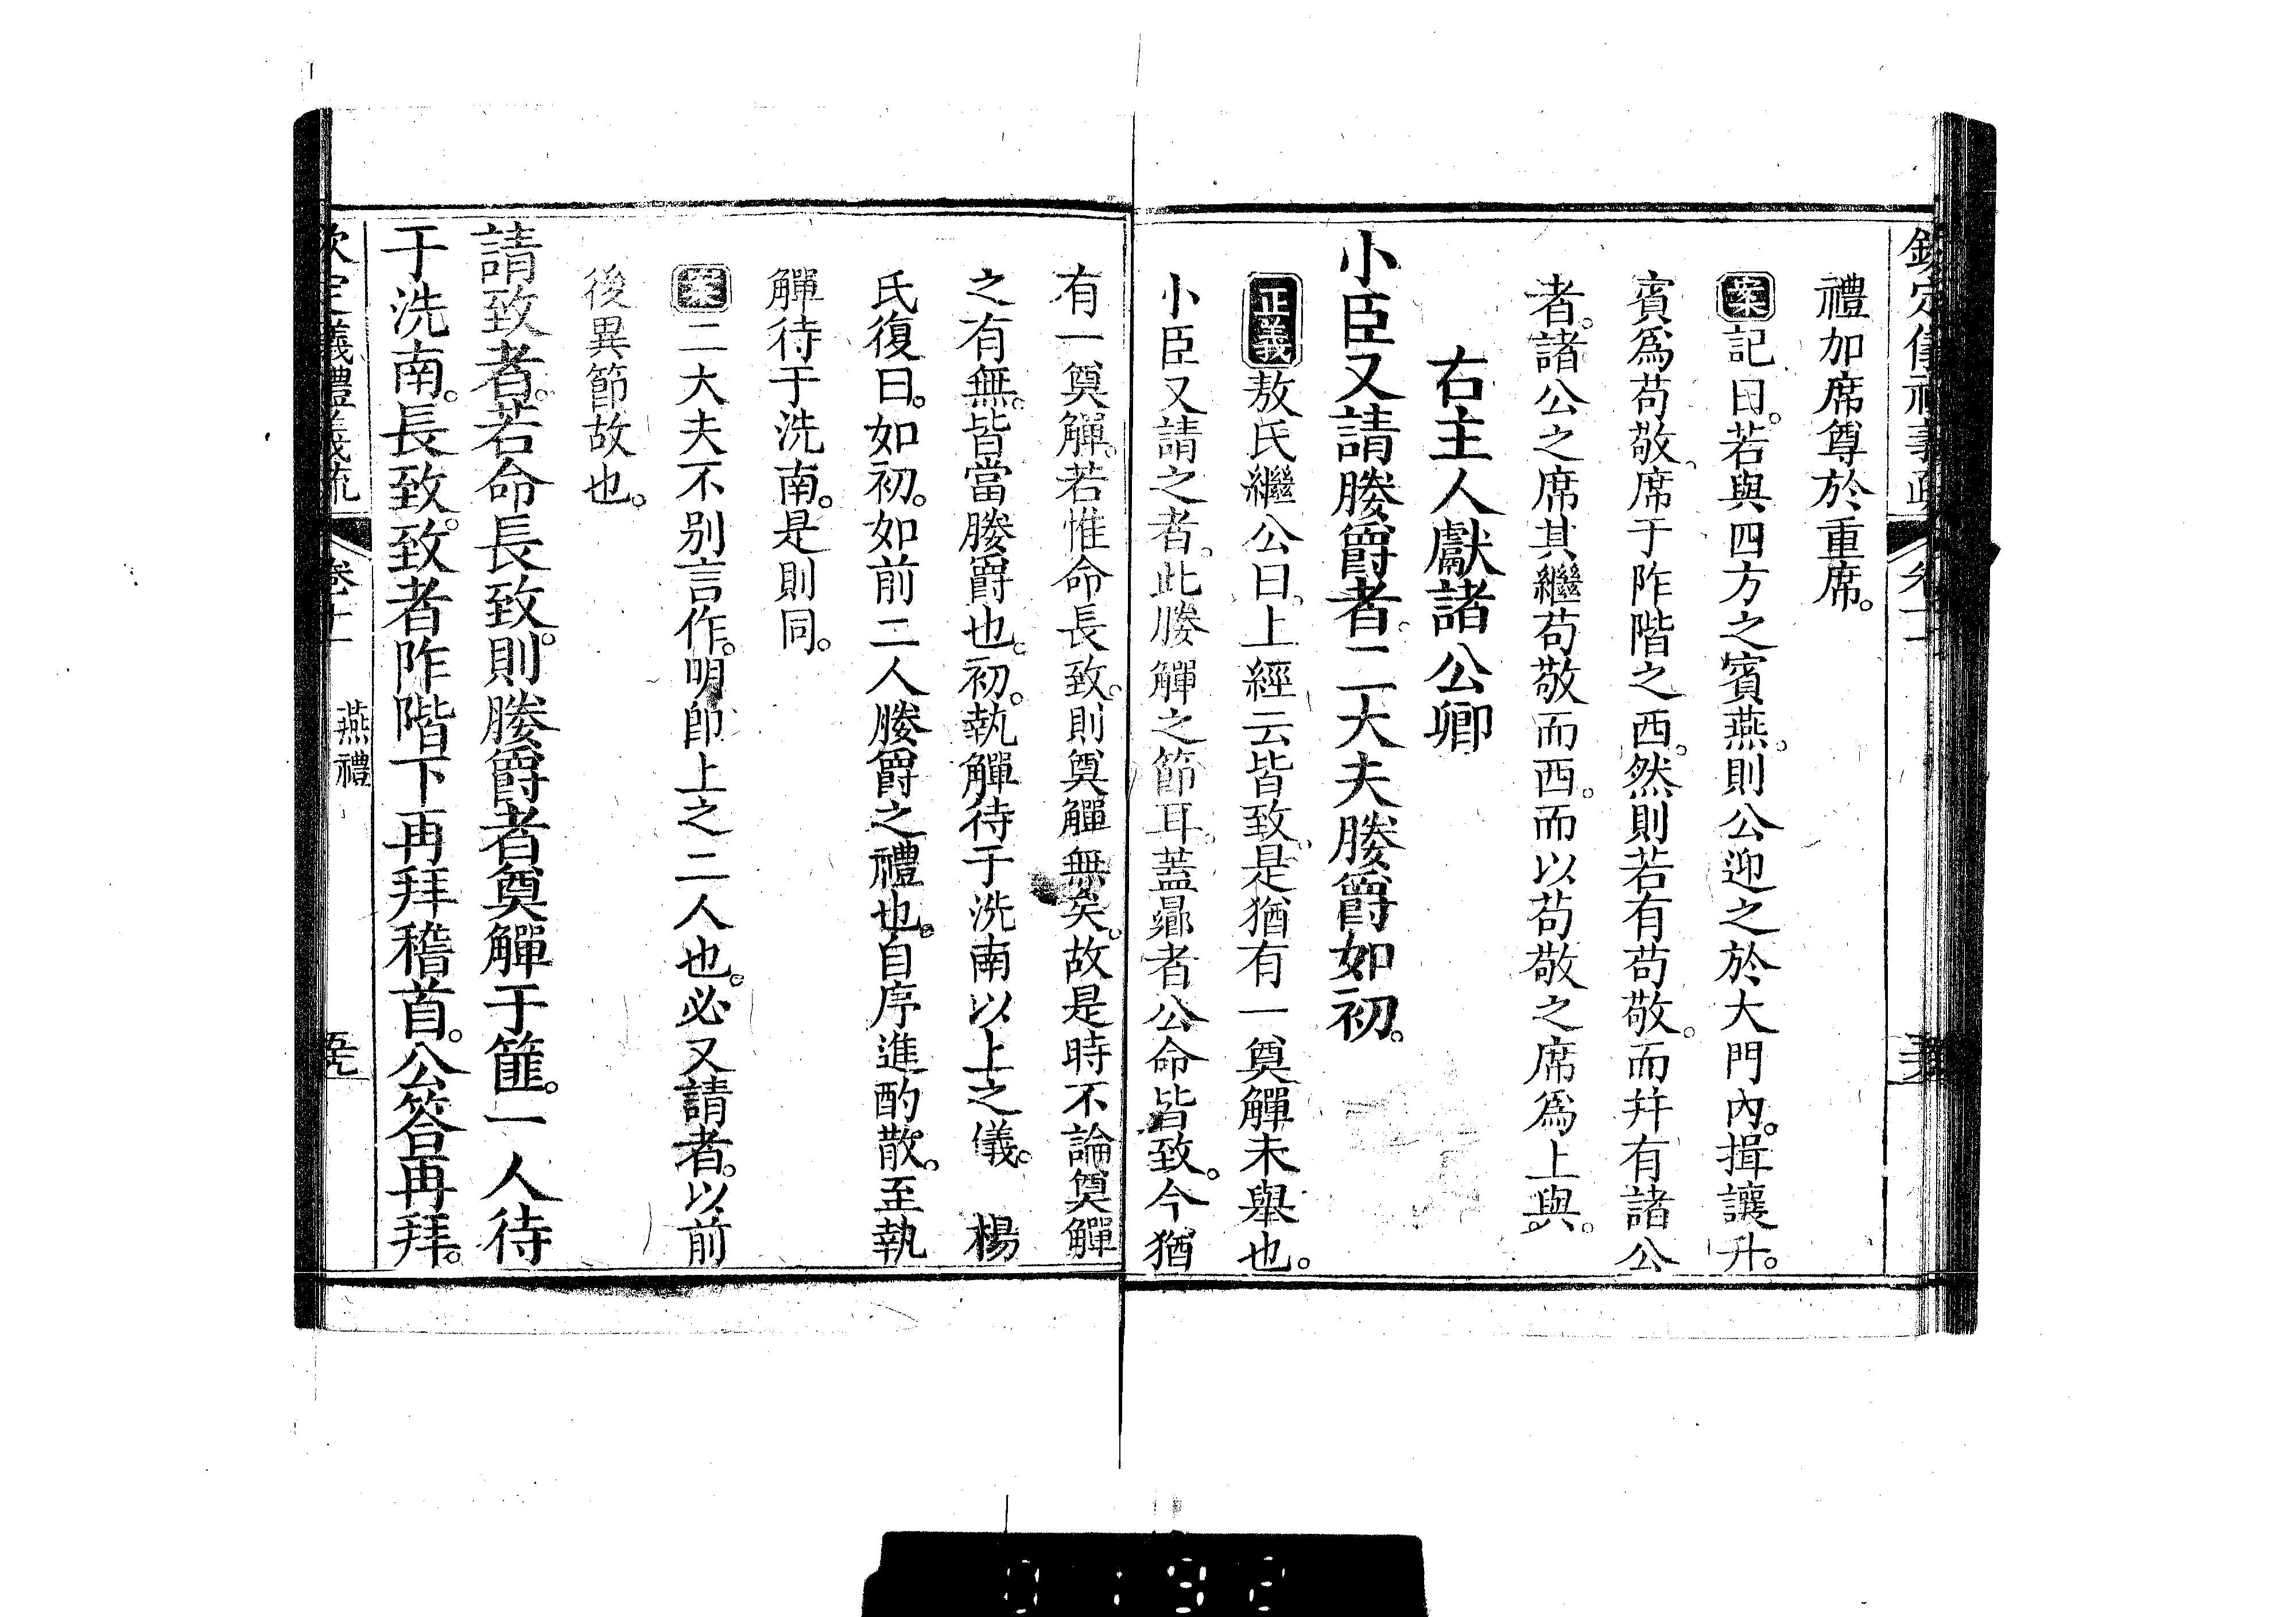 禮加席尊於重席。
案記曰。若與四方之賓燕。則公迎之於大門內。揖讓升。
賓爲苟敬。席于阼階之西。然則若有苟敬。而幷有諸公
者。諸公之席其繼苟敬而西。而以苟敬之席爲上與。
右主人獻諸公卿
小臣又請媵爵者。二大夫媵爵如初。
正義敖氏繼公曰。上經云皆致。是猶有一奠觶未舉也。
小臣又請之者。此媵觶之節耳。蓋曏者公命皆致。今猶
有一奠觶。若惟命長致。則奠觶無矣。故是時不論奠觶
之有無。皆當媵爵也。初。執觶待于洗南以上之儀。 楊
氏復曰。如初。如前二人媵爵之禮也。自序進酌散。至執
觶待于洗南。是則同。
案二大夫不別言作。明卽上之二人也。必又請者。以前
後異節故也。
請致者。若命長致。則媵爵者奠觶于篚。一人待
于洗南。長致。致者阼階下再拜稽首。公答再拜。
欽定儀禮義疏 卷十一 燕禮